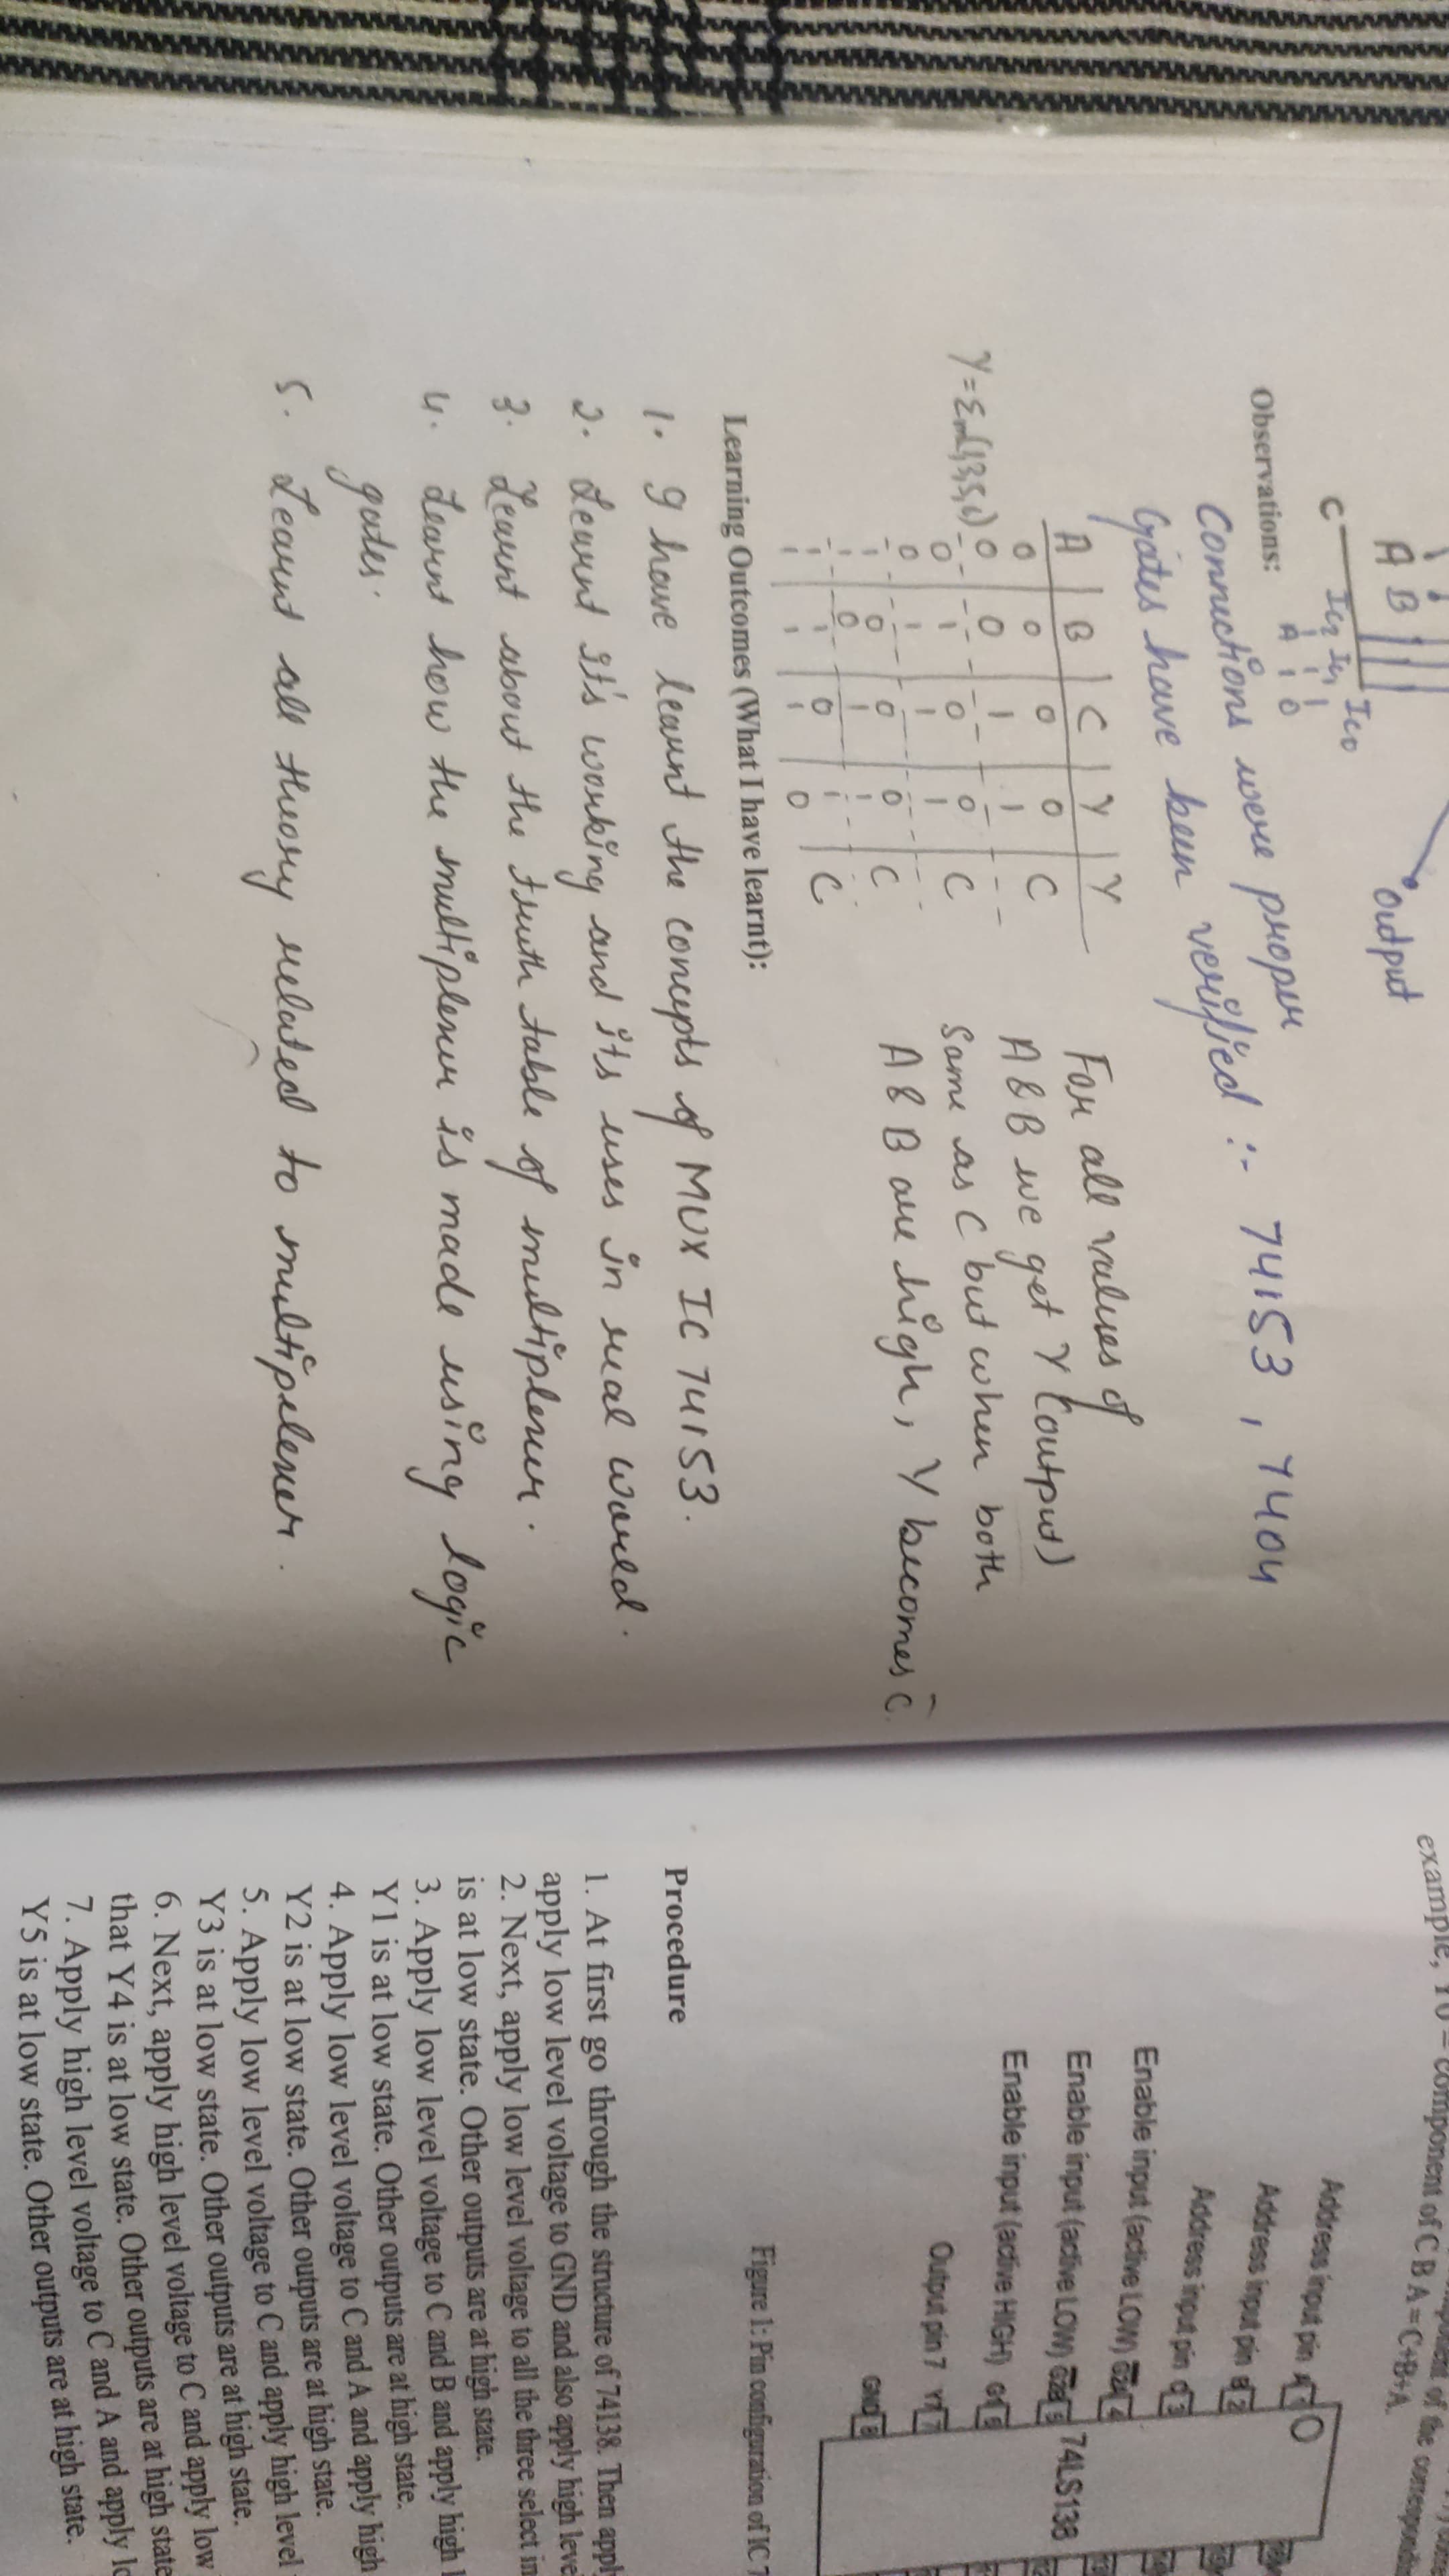 output
A B
C
IC2 IC1 IC0
A 1 1
1 1 0
Observations:
Connections were proper
Gates have been verified :- 74153, 7404
A B C Y Y
0 0 0 0 C
0 0 1 1
0 1 0 0 C
0 1 1 1
1 0 0 0 C
1 0 1 1
1 1 0 1 C
1 1 1 0
Y = Σm(1,3,5,6)
For all values of
A & B we get Y (output)
same as C but when both
A & B are high, Y becomes C̄.
Learning Outcomes (What I have learnt):
1. I have learnt the concepts of MUX IC 74153.
2. Learnt It's working and its uses in real world.
3. Learnt about the truth table of multiplexer.
4. Learnt how the multiplexer is made using logic
gates.
5. Learnt all theory related to multiplexer.
example, Y0 = component of C B A = C+B+A.
Address input pin A 1
Address input pin B 2
Address input pin C 3
Enable input (active LOW) G2A 4
Enable input (active LOW) G2B 5
Enable input (active HIGH) G1 6
Output pin 7 Y7 7
GND 8
74LS138
Figure 1: Pin configuration of IC 7
Procedure
1. At first go through the structure of 74138. Then appl
apply low level voltage to GND and also apply high leve
2. Next, apply low level voltage to all the three select in
is at low state. Other outputs are at high state.
3. Apply low level voltage to C and B and apply high l
Y1 is at low state. Other outputs are at high state.
4. Apply low level voltage to C and A and apply high
Y2 is at low state. Other outputs are at high state.
5. Apply low level voltage to C and apply high level
Y3 is at low state. Other outputs are at high state.
6. Next, apply high level voltage to C and apply low
that Y4 is at low state. Other outputs are at high state
7. Apply high level voltage to C and A and apply lo
Y5 is at low state. Other outputs are at high state.